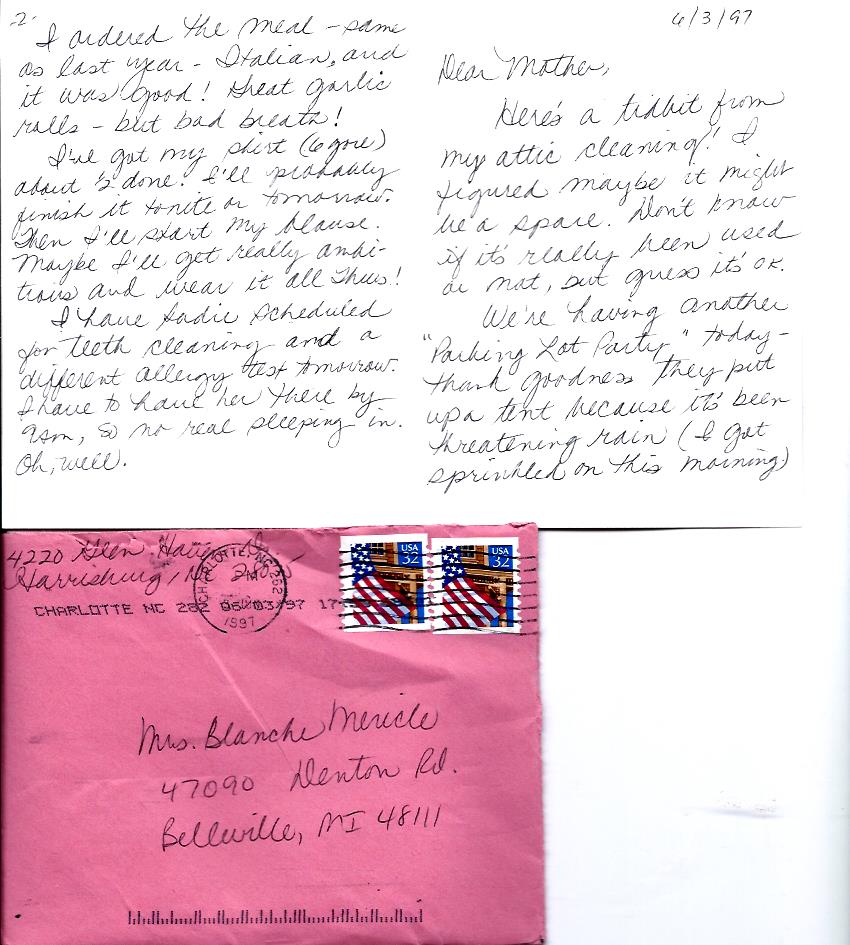 6/3/97
Dear Mother,
Here's a tidbit from
my attic cleaning! I
figured maybe it might
be a spare. Don't know
if it's really been used
or not, but guess it's ok.
We're having another
"Parking Lot Party" today -
thank goodness they put
up a tent because it's been
threatening rain (I got
sprinkled on this morning)
-2-
I ordered the meal - same
as last year - Italian, and
it was good! Great garlic
rolls - but bad breath!
I've got my skirt (6 gore)
about ½ done. I'll probably
finish it tonite or tomorrow.
Then I'll start my blouse.
Maybe I'll get really ambi-
tious and wear it all Thurs!
I have Sadie scheduled
for teeth cleaning and a
different allergy test tomorrow.
I have to have her there by
9am, so no real sleeping in.
Oh, well.
4220 Glen
Harrisburg, NC
CHARLOTTE, NC 282
PM
1997
CHARLOTTE NC 282 06/03/97
USA
32
USA
32
Mrs. Blanche Mericle
47090 Denton Rd.
Belleville, MI 48111